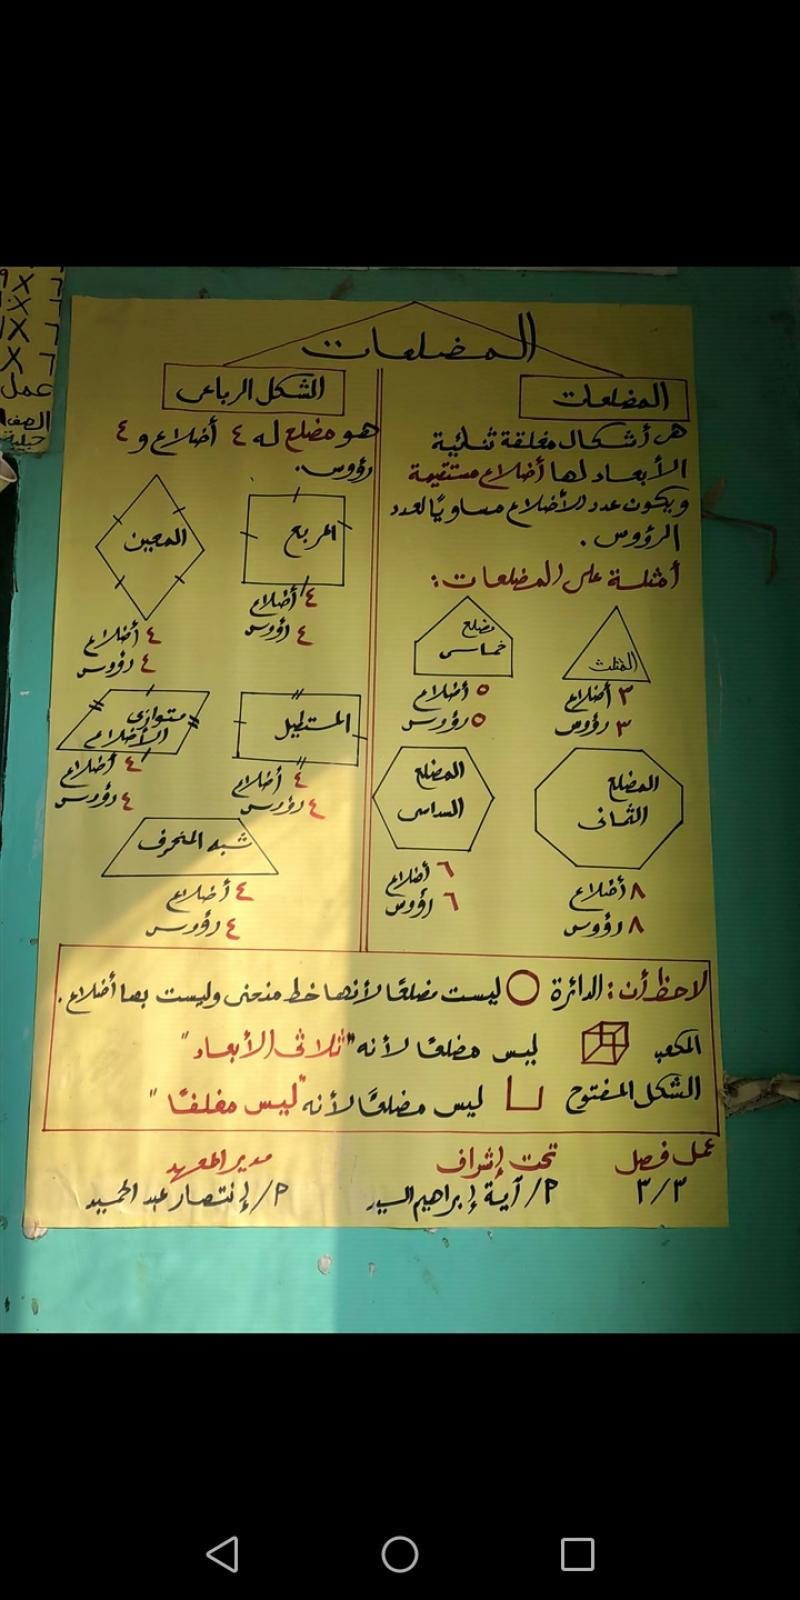 المضلعات
المضلعات
هى أشكال مغلقة ثنائية
الأبعاد لها أضلاع مستقيمة
ويكون عدد الأضلاع مساويًا لعدد
الرؤوس.
أمثلة على المضلعات:
المثلث
٣ أضلاع
٣ رؤوس
مضلع
خماسى
٥ أضلاع
٥ رؤوس
المضلع
الثمانى
٨ أضلاع
٨ رؤوس
المضلع
السداسى
٦ أضلاع
٦ رؤوس
الشكل الرباعى
هو مضلع له ٤ أضلاع و ٤
رؤوس.
المربع
٤ أضلاع
٤ رؤوس
المعين
٤ أضلاع
٤ رؤوس
المستطيل
٤ أضلاع
٤ رؤوس
متوازى
الأضلاع
٤ أضلاع
٤ رؤوس
شبه المنحرف
٤ أضلاع
٤ رؤوس
لاحظ أن: الدائرة ليست مضلعًا لأنها خط منحنى وليست بها أضلاع.
المكعب ليس مضلعًا لأنه "ثلاثى الأبعاد"
الشكل المفتوح ليس مضلعًا لأنه "ليس مغلقًا"
عمل فصل
٣/٣
تحت إشراف
م/ آية إبراهيم السيد
مدير المعهد
م/ إنتصار عبد الحميد
٦ X ٩
٦ X
٦ X
٦ X
عمل
الصف